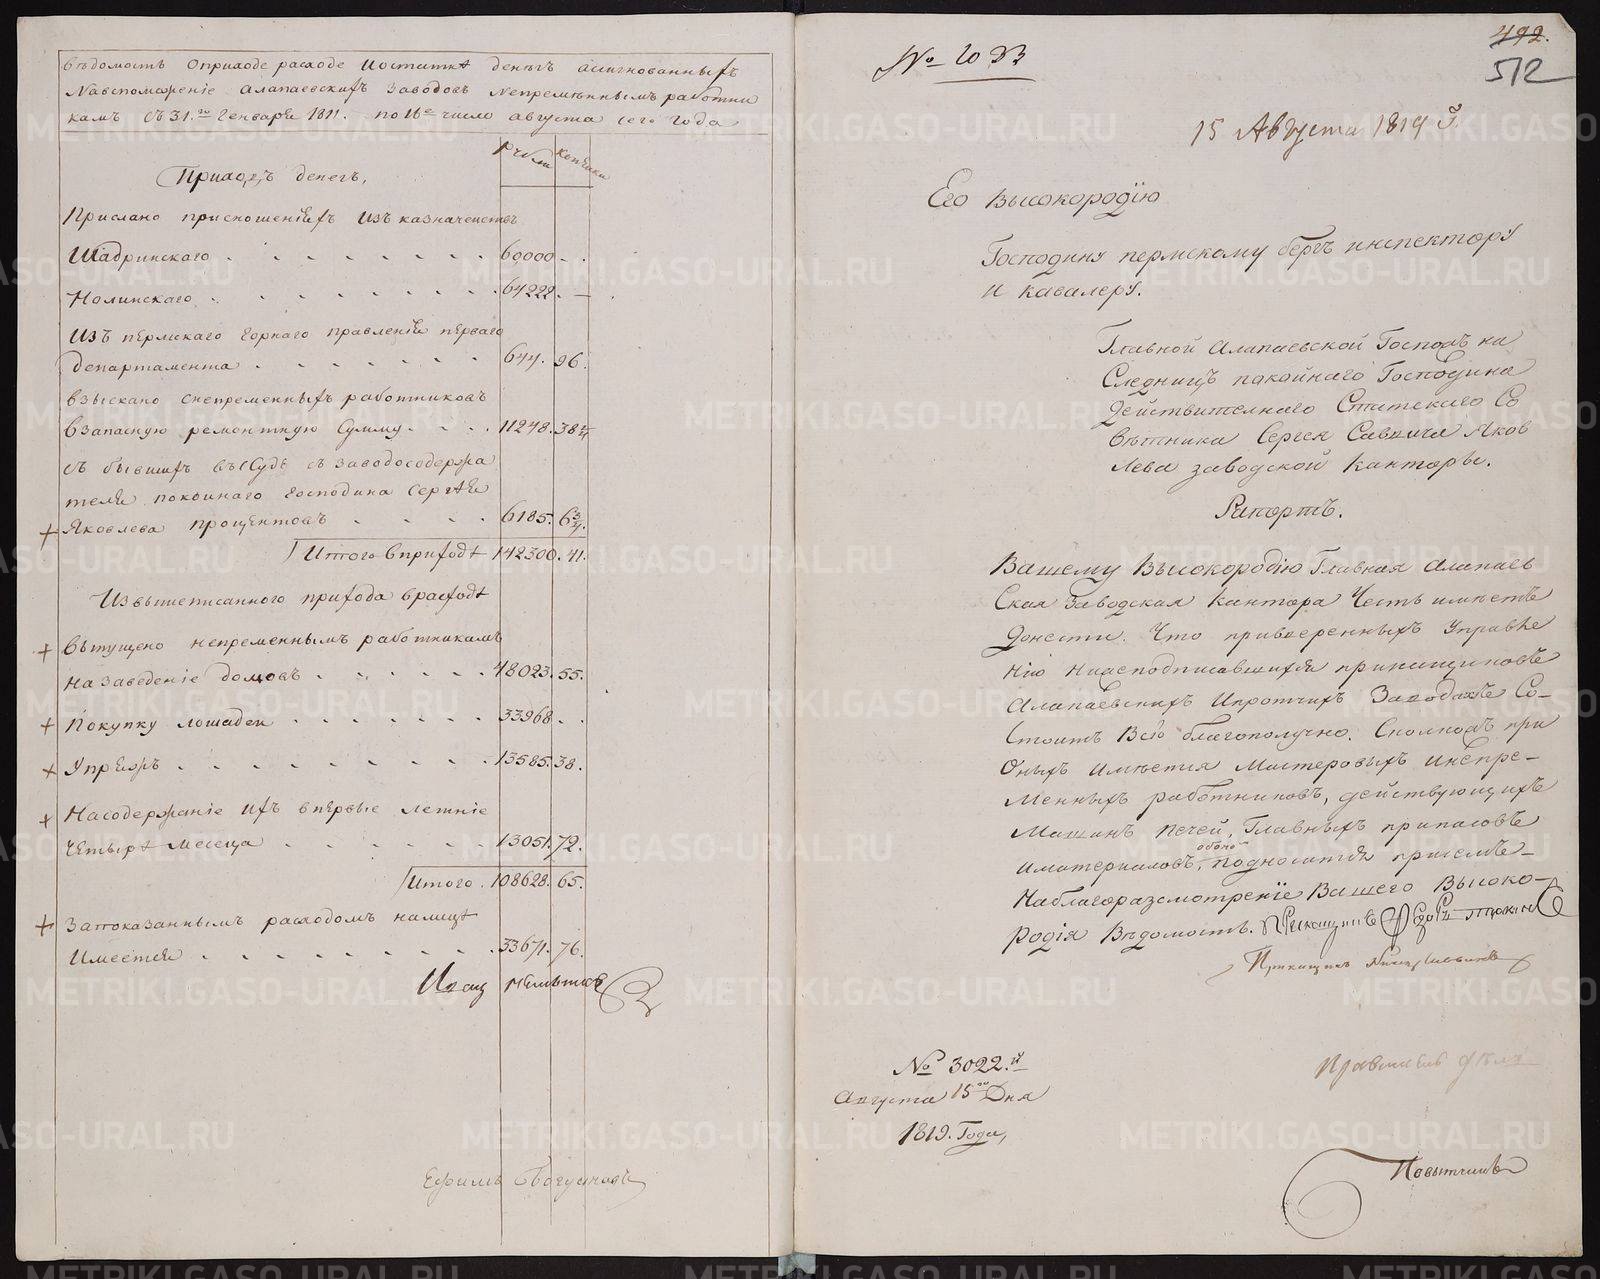 Вѣдомость Оприходе расходе Иостаткѣ денегъ асигнованныхъ
Навспоможеніе Алапаевскихъ заводовъ Непремѣннымъ работни
камъ съ 31.го Генваря 1811. по 16е число августа сего года
Рубли Копѣики
Приходъ денегъ,
Прислано присношеніяхъ Изъ казначеиствъ
Шадринскаго . . . . . . . . 60000. .
Нолинскаго . . . . . . . . 64222. —
Изъ пермскаго горнаго правленія перваго
Департамента . . . . . . 644. 96.
Взыскано снепременныхъ работниковъ
Взапасную ремонтную Сумму . . . . 11248. 38
съ бывшихъ въ Судѣ съ заводосодержа
теля покоинаго Господина Сергея
+ Яковлева процентовъ . . . . 6185. 6 3/4.
Итого вприходѣ 142300. 41.
Извышеписанного прихода врасходѣ
+ Выпущено непременнымъ работникамъ
На заведеніе домовъ . . . . . . 48023. 55.
+ Покупку лошадеи . . . . . . . 33968. .
+ Упряжъ . . . . . . . . . 13585. 38.
+ Насодержаніе ихъ впервые летніе
четырѣ месяца . . . . . . 13051. 72.
Итого . 108628. 65.
+ Запоказаннымъ расходомъ налицѣ
Имеется . . . . . . . . . 33671. 76.
Ефимъ
№ 2033
492.
512
15 Августа 1819 Г.
Его Высокородїю
Господину пермскому бергъ инспектору
и кавалеру.
Главной Алапаевской Госпожъ на
Следницъ покойнаго Господина
Действителнаго Статскаго Со
вѣтника Сергея Савича Яков
лева заводской Канторы.
Рапортъ.
Вашему Высокородїю Главная Алапаев
Ская Заводская Кантора Честь имѣетъ
донести. Что привверенныхъ Управле
нїю нижеподписавшихся прикащиковъ
Алапаевскихъ Ипротчихъ Заводахъ Со-
стоитъ Всіо благополучно. Сколкожъ при
Оныхъ имѣется Мастеровыхъ инепре-
менныхъ работниковъ, действующихъ
Машинъ печей, Главныхъ припасовъ
иматериаловъ, обоно подносится присемъ-
Наблагоразсмотренїе Вашего Высоко-
родїя Вѣдомость. Прикащикъ
Прикащикъ
№ 3022.й
Августа 15го Дня
1819. Года,
Повытчикъ
METRIKI.GASO-URAL.RU